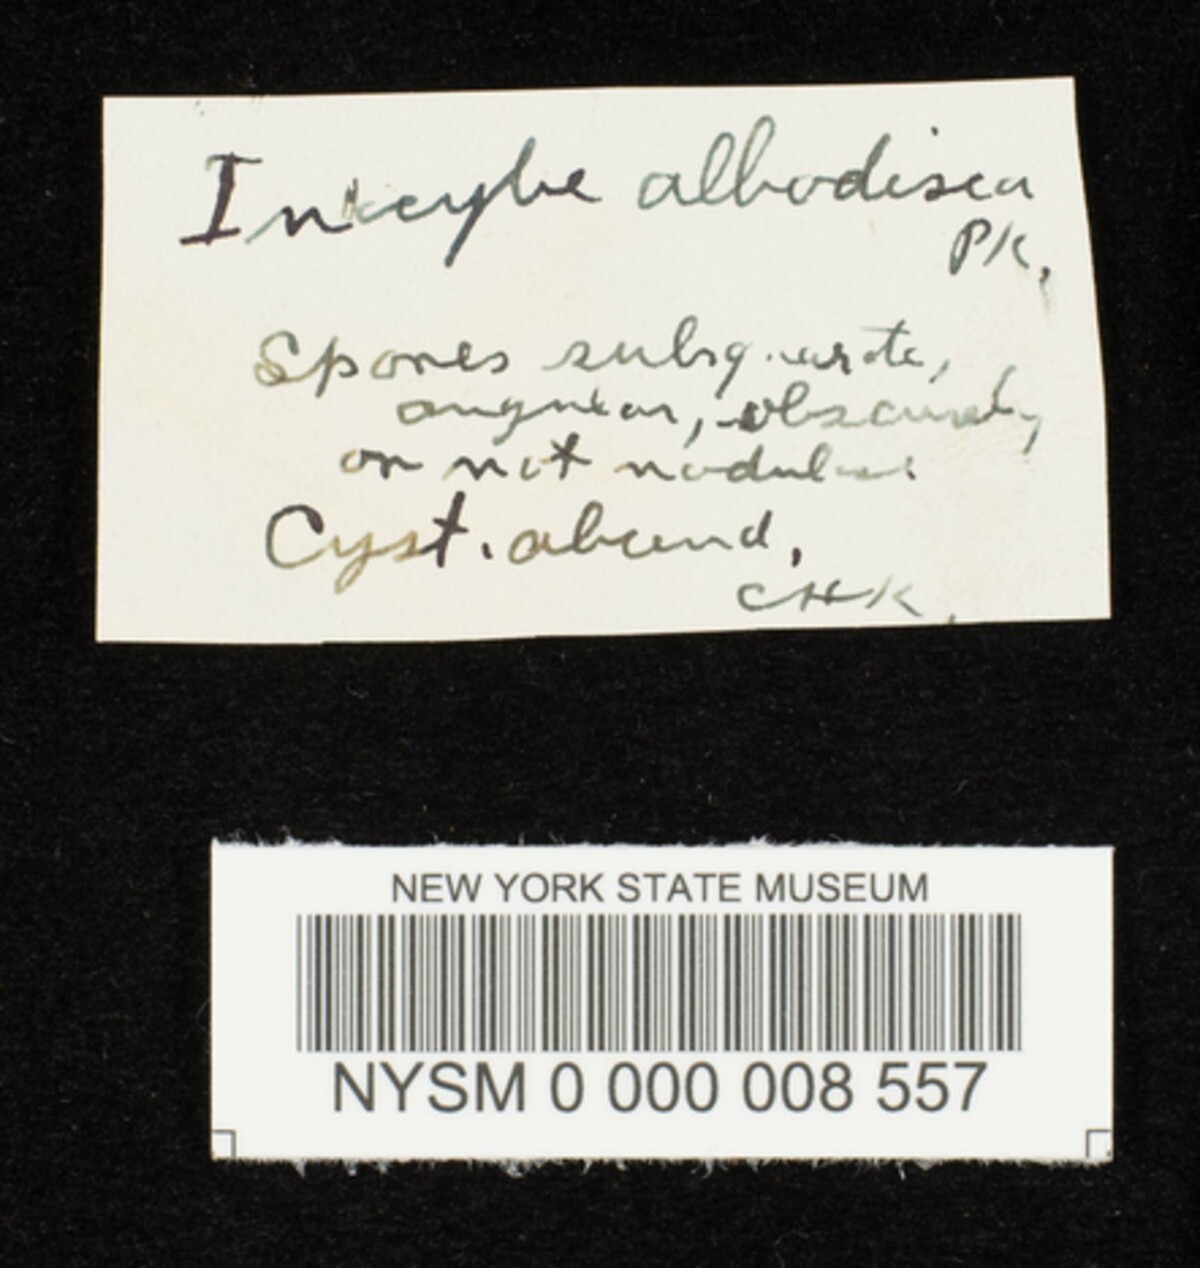 Inocybe albodisca
PK.
Spores subquadrate,
angular, obscurely
or not nodulose
Cyst. abund.
CHK.
NEW YORK STATE MUSEUM
NYSM 0 000 008 557